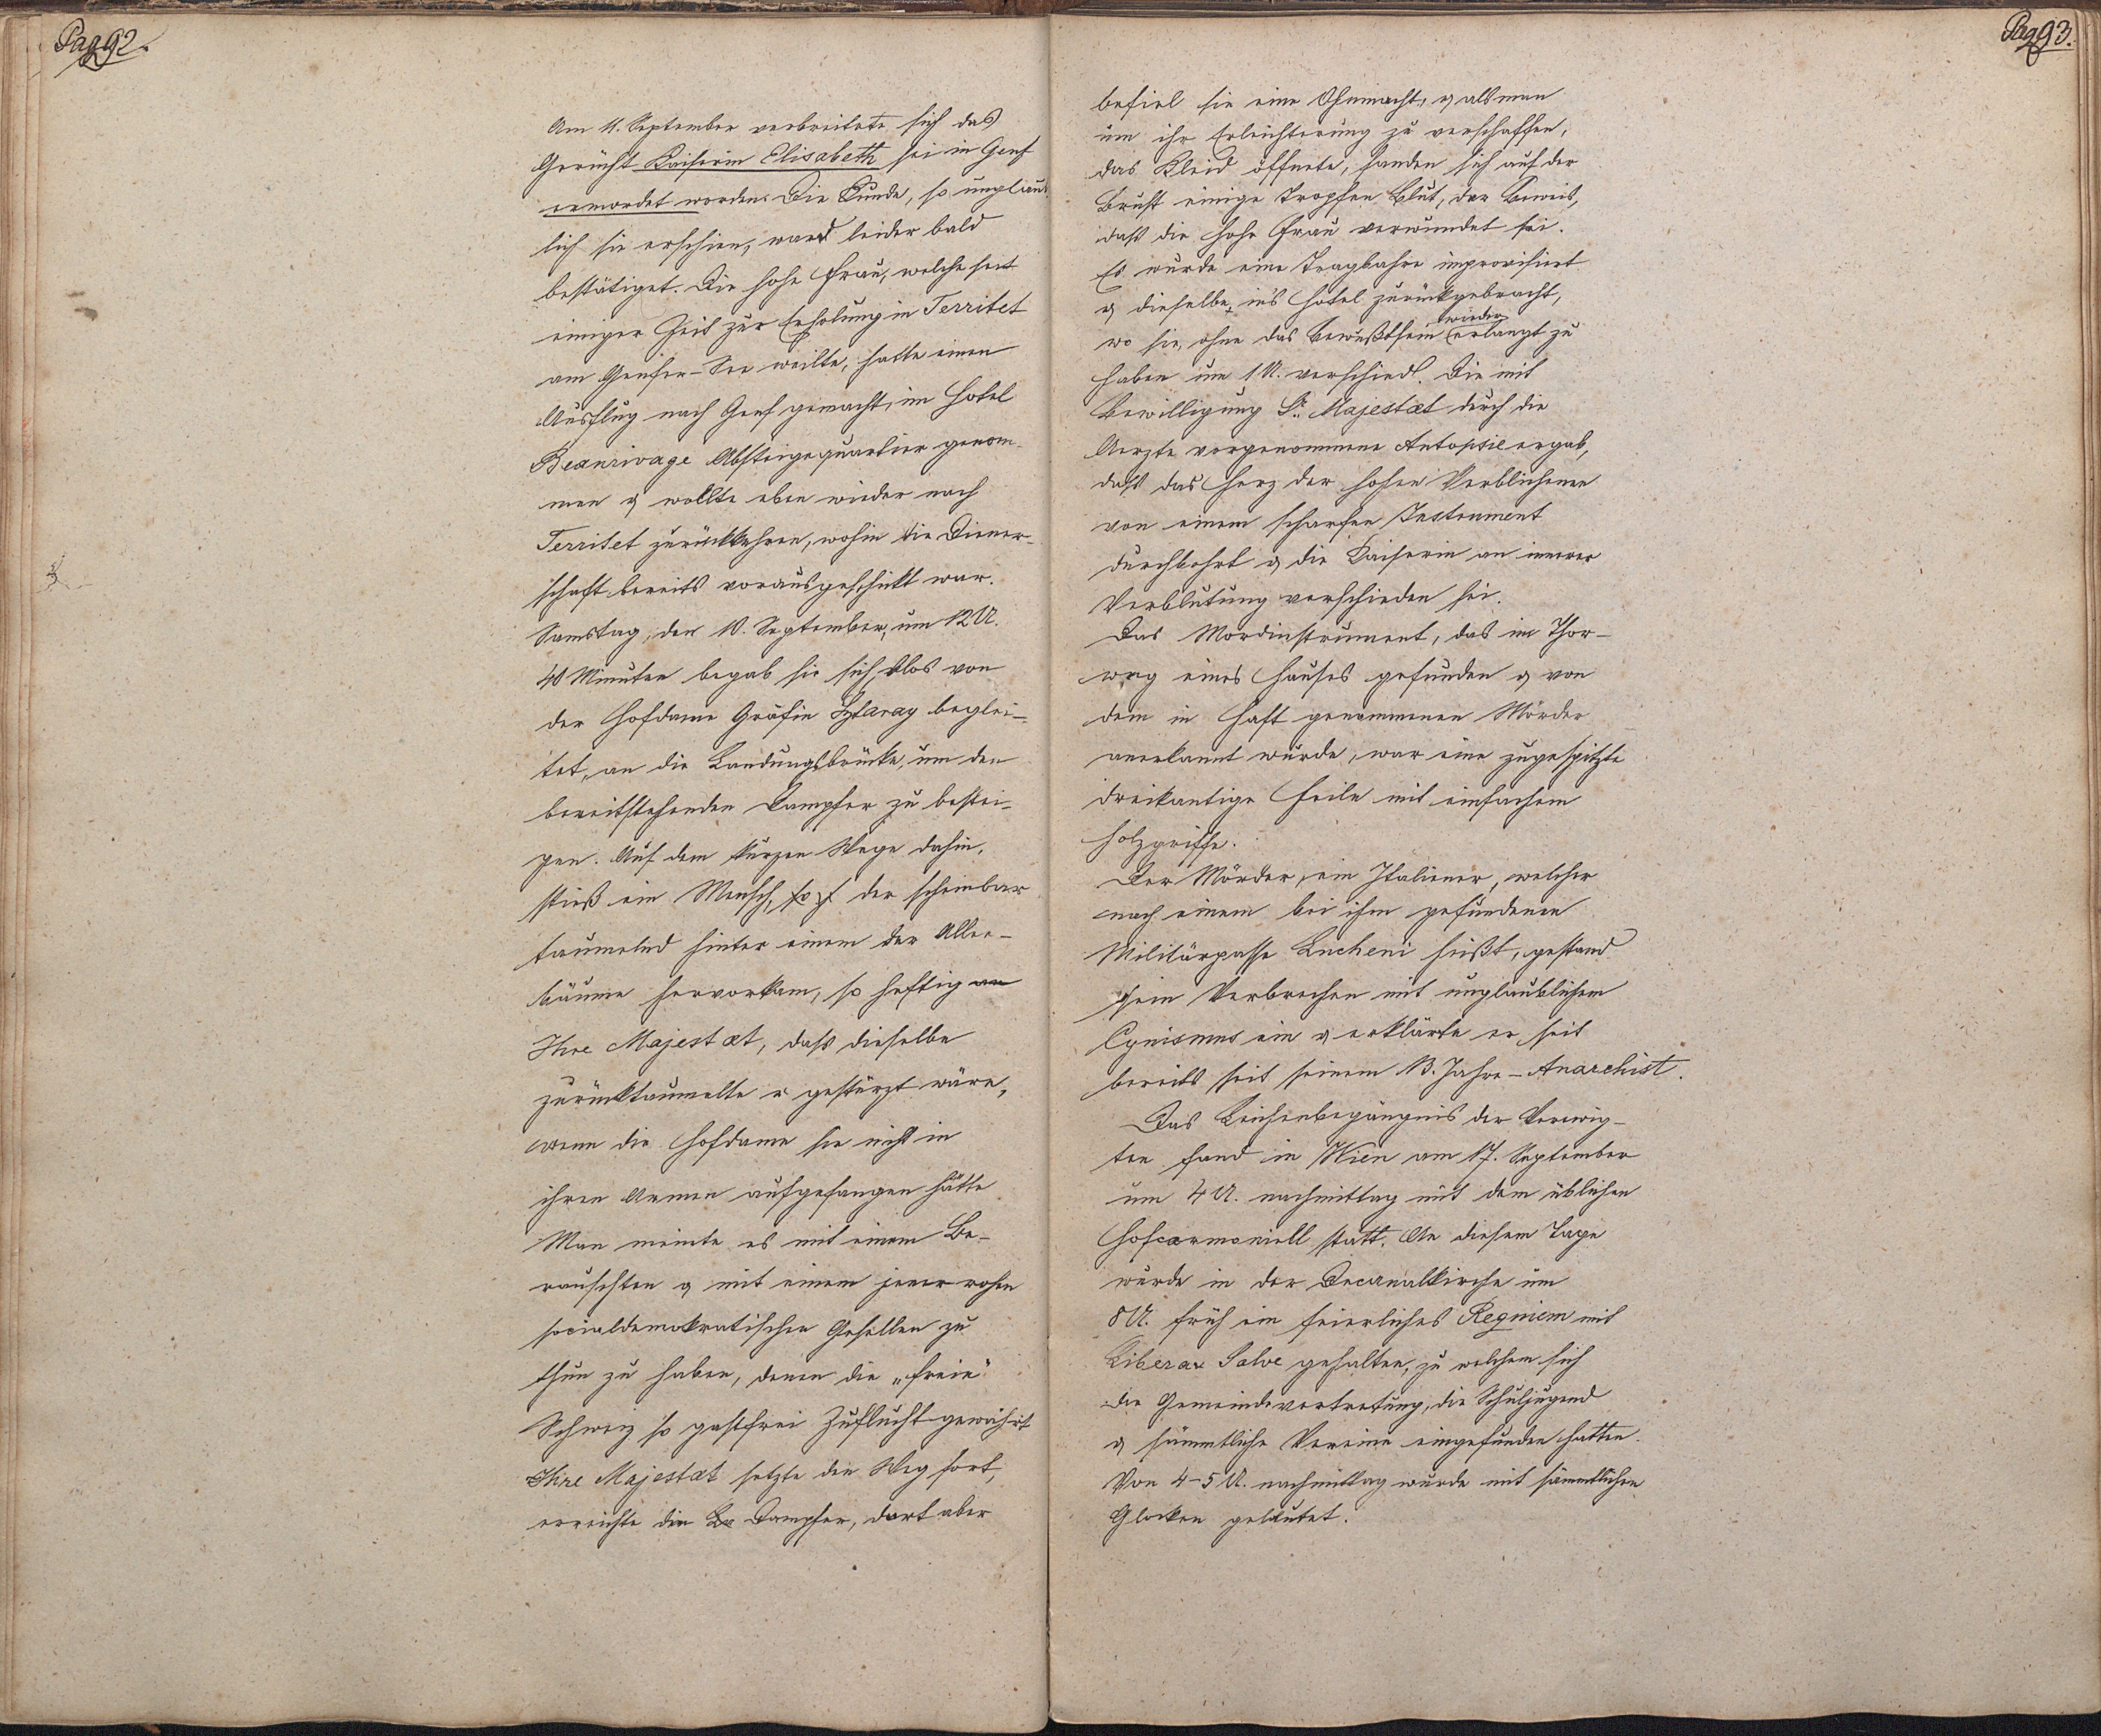 Pag 92.
Am 11. September verbreitete sich das
Gerücht Kaiserin Elisabeth sei in Genf
ermordet worden. Die Kunde, so unglaub-
lich sie erschien, ward leider bald
bestätiget. Die hohe Frau, welche seit
einiger Zeit zur Erholung in Territet
am Genfer-See weilte, hatte einen
Ausflug nach Genf gemacht, im Hotel
Beaurivage Absteigequartier genom-
men & wollte eben wieder nach
Territet zurückkehren, wohin die Diener-
schaft bereits vorausgeschickt war.
Samstag, den 10. September, um 12 U.
40 Minuten begab sie sich, blos von
der Hofdame Gräfin Sztaray beglei-
tet, an die Landungsbrücke, um den
bereitstehenden Dampfer zu bestei-
gen. Auf dem kurzen Wege dahin,
stieß ein Mensch, der scheinbar
taumelnd hinter einem der Allee-
bäume hervorkam, so heftig an
Ihre Majestæt, daß dieselbe
zurücktaumelte u gestürzt wäre,
wenn die Hofdame sie nicht in
ihren Armen aufgefangen hätte
Man meinte es mit einem Be-
rauschten & mit einem jener rohen
socialdemokratischen Gesellen zu
thun zu haben, denen die „freie"
Schweiz so gastfrei Zuflucht gewährt
Ihre Majestæt setzte den Weg fort,
erreichte den Dampfer, dort aber
Pag 93.
befiel sie eine Ohnmacht, & als man
um ihr Erleichterung zu verschaffen,
das Kleid öffnete, fanden sich auf der
Brust einige Tropfen Blut, der Beweis,
daß die hohe Frau verwundet sei.
Es wurde eine Tragbahre improvisiert
& dieselbe, ins Hotel zurückgebracht,
wo sie, ohne das Bewußtsein wieder erlangt zu
haben um 1 U. verschied. Die mit
Bewilligung Sr. Majestæt durch die
Aerzte vorgenommene Autopsie ergab,
daß das Herz der hohen Verblichenen
von einem scharfen Instrument
durchbohrt & die Kaiserin an innerer
Verblutung verschieden sei.
Das Mordinstrument, das im Thor-
weg eines Hauses gefunden & von
dem in Haft genommenen Mörder
anerkannt wurde, war eine zugespitzte
dreikantige Feile mit einfachem
Holzgriffe.
Der Mörder, ein Italiener, welcher
nach einem bei ihm gefundenen
Militärpasse Lucheni heißt, gestand
sein Verbrechen mit unglaublichem
Cynismus ein & erklärte er sei
bereits seit seinem 13. Jahre - Anarchist.
Das Leichenbegängnis der Verewig-
ten fand in Wien am 17. September
um 4 U. nachmittag mit dem üblichen
Hofcærmoniell statt. An diesem Tage
wurde in der Decanalkirche um
8 U. früh ein feierliches Requiem mit
Libera & Salve gehalten, zu welchem sich
die Gemeindevertretung, die Schuljugend
& sämmtliche Vereine eingefunden hatten.
Von 4-5 U. nachmittag wurde mit sämmtlichen
Glocken geläutet.